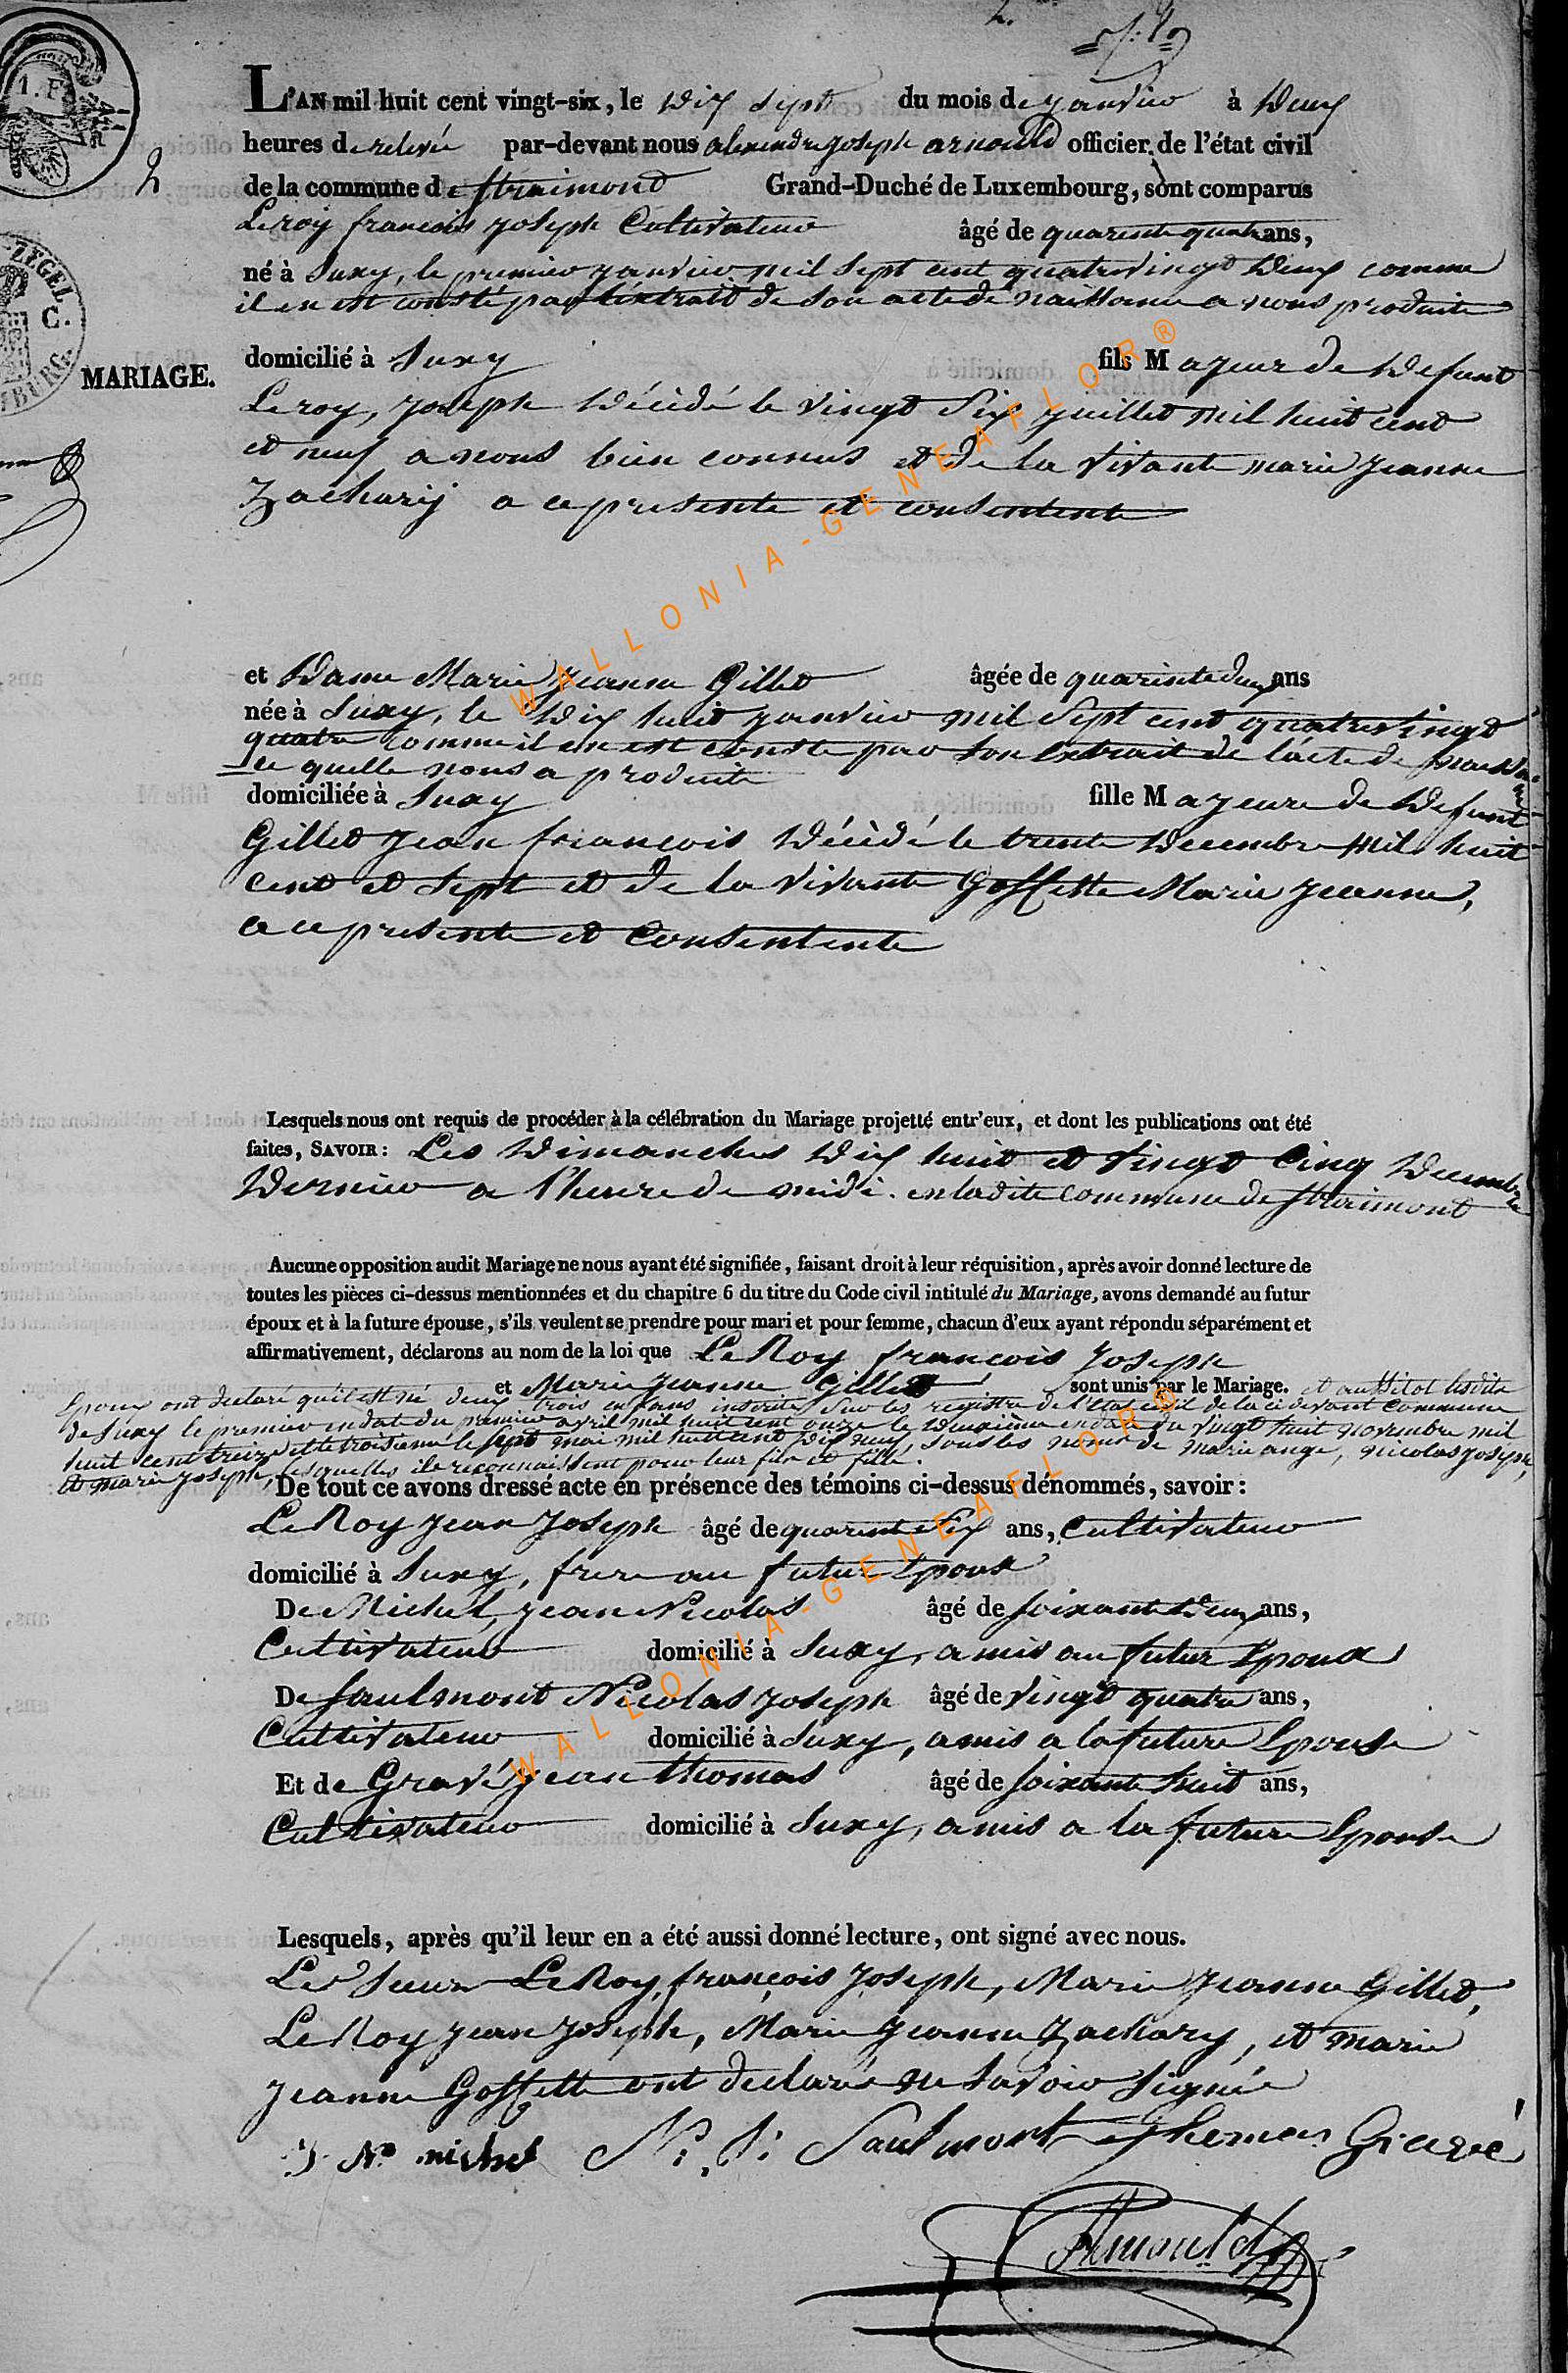 2.
L'AN mil huit cent vingt-six, le dix sept du mois de janvier à deux
heures de relevée par-devant nous alexandre joseph arnould officier de l'état civil
2
de la commune de straimond Grand-Duché de Luxembourg, sont comparus
Leroy françois joseph Cultivateur âgé de quarente quatre ans,
né à Suxy, le premier janvier mil sept cent quatrevingt deux comme
il en est consté par l'extrait de son acte de naissance a nous produite
domicilié à Suxy fils Majeur de defunt
MARIAGE.
Leroy, joseph décédé le vingt six juillet mil huit cent
et neuf a nous bien connus et de la vivante marie jeanne
Zacharij a ce presente et consentente
et dame Marie jeanne Gillet âgée de quarinte deux ans
née à Suxy, le dix huit janvier mil sept cent quatrevingt
quatre comme il en est consté par son extrait de l'acte de
ce quelle nous a produite
domiciliée à Suxy fille Majeure de defunt
Gillet jean françois décédé le trente decembre mil huit
cent et sept et de la vivante Goffette Marie jeanne,
a ce presente et consentente
Lesquels nous ont requis de procéder à la célébration du Mariage projetté entr'eux, et dont les publications ont été
faites, SAVOIR : Les dimanches dix huit et vingt cinq decembre
dernier a l'heure de midi. en ladite commune de straimont
Aucune opposition audit Mariage ne nous ayant été signifiée, faisant droit à leur réquisition, après avoir donné lecture de
toutes les pièces ci-dessus mentionnées et du chapitre 6 du titre du Code civil intitulé du Mariage, avons demandé au futur
époux et à la future épouse, s'ils veulent se prendre pour mari et pour femme, chacun d'eux ayant répondu séparément et
affirmativement, déclarons au nom de la loi que LeRoy françois Joseph
et Marie jeanne Gillet sont unis par le Mariage. et aussitot lesdits
Epoux ont declaré qu'il est né deux trois enfans inscrits sur les registre de l'état civil de la ci devant commune
de Suxy le premier en dat du premier avril mil huit cent onze le deuxième en dat du vingt huit novembre mil
huit cent treize et le troisieme le sept mai mil huit cent dix neuf, sous les noms de marie ange, nicolas joseph,
et marie joseph, lesquelles ils reconnaissent pour leur fils et fille.
De tout ce avons dressé acte en présence des témoins ci-dessus dénommés, savoir :
LeRoy jean Joseph âgé de quarente six ans, Cultivateur
domicilié à Suxy, frere au futur Epoux
De Michel, jean Nicolas âgé de soixante deux ans,
Cultivateur domicilié à Suxy, amis au futur Epoux
De Saulmont Nicolas joseph âgé de vingt quatre ans,
Cultivateur domicilié à Suxy, amis a la future Epouse
Et de Gravé jean thomas âgé de soixante huit ans,
Cultivateur domicilié à Suxy, amis a la future Epouse
Lesquels, après qu'il leur en a été aussi donné lecture, ont signé avec nous.
Les sieur LeRoy, françois Joseph, Marie jeanne Gillet,
LeRoy jean Joseph, Marie jeanne Zachary, et marie
jeanne Goffette ont declarés ne savoir signée
J. N. michel N. J. Saulmont thomas Gravé
Arnould
WALLONIA-GENEAFLOR®
WALLONIA-GENEAFLOR®